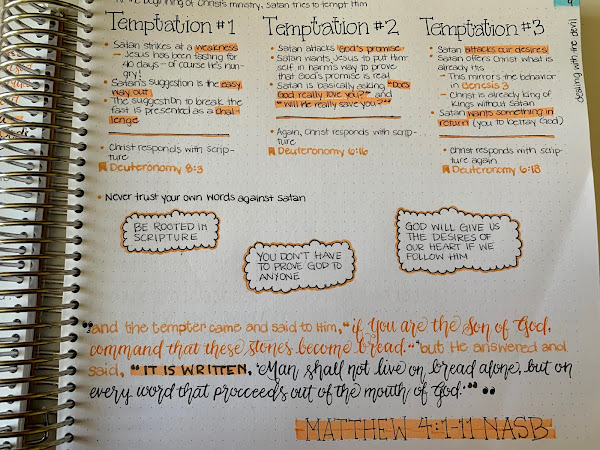 beginning of Christ's ministry, satan tries to tempt Him
Temptation #1
• Satan strikes at a weakness
– Jesus has been fasting for
40 days – of course He's hun-
gry!
• Satan's suggestion is the easy
way out
• The suggestion to break the
fast is presented as a chal-
lenge
• Christ responds with scrip-
ture
Deuteronomy 8:3
Temptation #2
• Satan attacks God's promise
• Satan wants Jesus to put Him-
self in harm's way to prove
that God's promise is real
• Satan is basically asking "Does
God really love you?" and
"Will He really save you?"
• Again, Christ responds with scrip-
ture
Deuteronomy 6:16
Temptation #3
• Satan attacks our desires
• Satan offers Christ what is
already His
– This mirrors the behavior
in Genesis 3
– Christ is already king of
kings without Satan
• Satan wants something in
return (you to betray God)
• Christ responds with scrip-
ture again
Deuteronomy 6:13
dealing with the devil
• Never trust your own words against Satan
BE ROOTED IN
SCRIPTURE
YOU DON'T HAVE
TO PROVE GOD TO
ANYONE
GOD WILL GIVE US
THE DESIRES OF
OUR HEART IF WE
FOLLOW HIM
"and the tempter came and said to Him, "if You are the Son of God,
command that these stones become bread." but He answered and
said, "IT IS WRITTEN, 'Man shall not live on bread alone, but on
every word that proceeds out of the mouth of God.'" "
MATTHEW 4:1-11 NASB